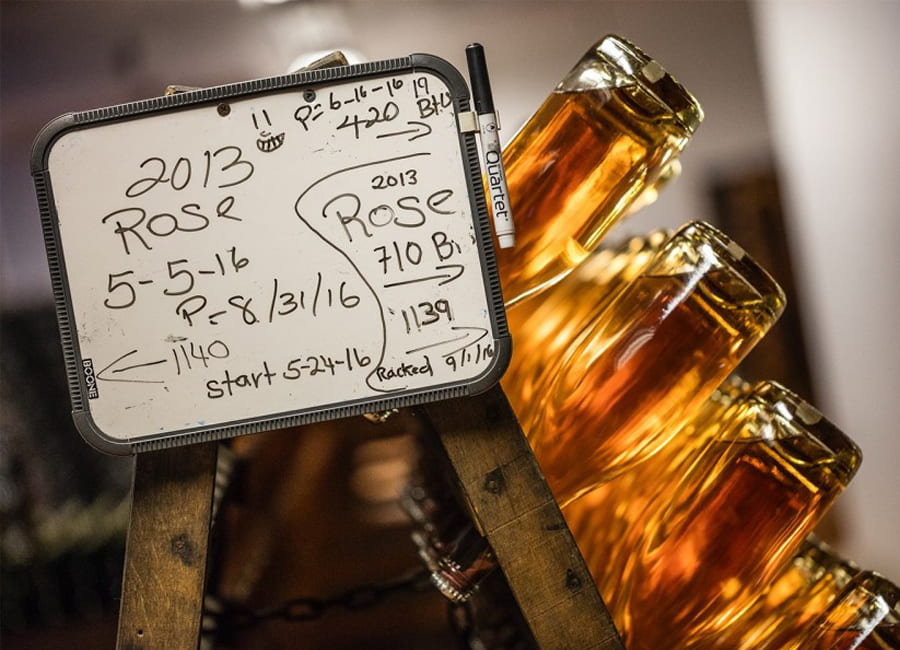 P= 6-16-16 19
420 Btl
2013
Rose
5-5-16
P= 8/31/16
1140
start 5-24-16
2013
Rose
710 B
1139
Racked 9/1/16
BOONE
Quartet